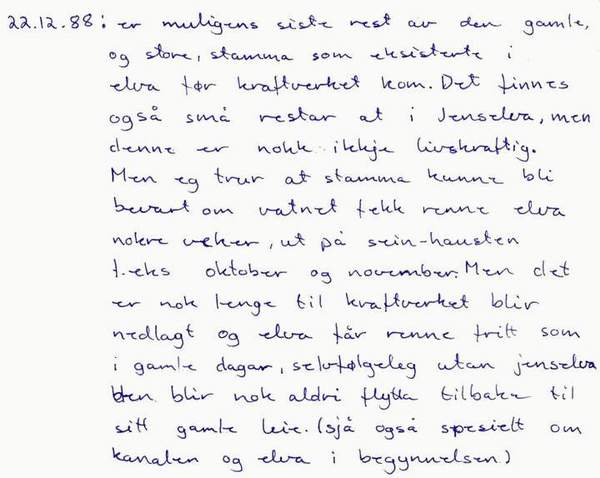 22.12.88: er muligens siste rest av den gamle,
og store, stamma som eksisterte i
elva før kraftverket kom. Det finnes
også små restar at i Jenselva, men
denne er nokk ikkje livskraftig.
Men eg trur at stamma kunne bli
bevart om vatnet fekk renne elva
nokre veker, ut på sein-hausten
f.eks oktober og november. Men det
er nok lenge til kraftverket blir
nedlagt og elva får renne fritt som
i gamle dagar, selvfølgeleg utan jenselva
den blir nok aldri flytta tilbake til
sitt gamle leie. (sjå også spesielt om
kanalen og elva i begynnelsen.)